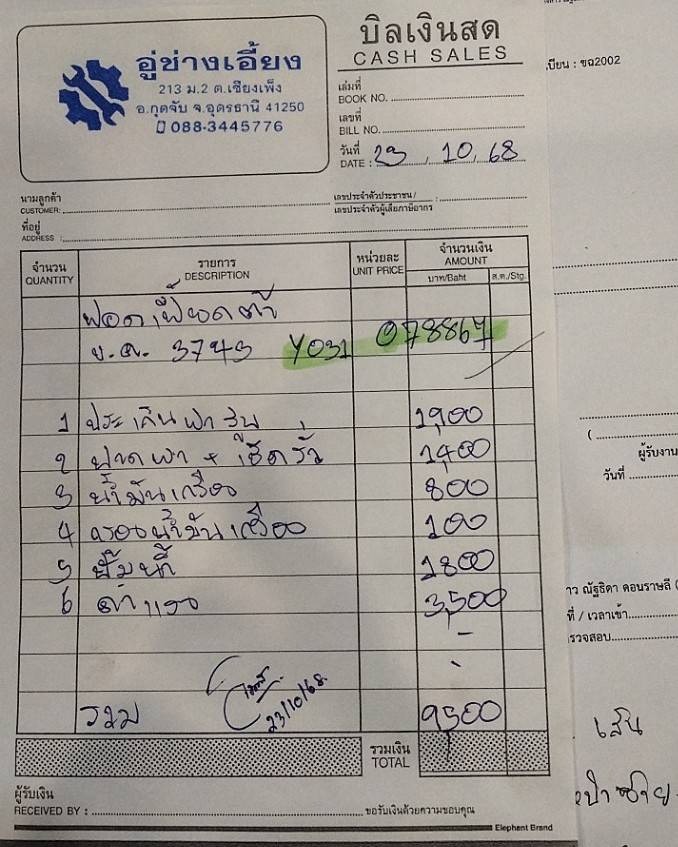 บิลเงินสด
CASH SALES
อู่ช่างเอี้ยง
213 ม.2 ต.เชียงเพ็ง
อ.กุดจับ จ.อุดรธานี 41250
088-3445776
เล่มที่
BOOK NO.
เลขที่
BILL NO.
วันที่
DATE : 23, 10, 68
นามลูกค้า
CUSTOMER:
เลขประจำตัวประชาชน /
เลขประจำตัวผู้เสียภาษีอากร
ที่อยู่
ADDRESS :
จำนวน รายการ หน่วยละ จำนวนเงิน
QUANTITY DESCRIPTION UNIT PRICE AMOUNT
บาท/Baht ส.ต./Stg.
3743 Y031 078867
1 ประเก็นฝาสูบ 1,900
2 ปาดฝา + เช็ครั่ว 1,400
3 น้ำมันเครื่อง 800
4 กรองน้ำมันเครื่อง 100
5 ปั๊มน้ำ 1800
6 ค่าแรง 3,500
23/10/68.
รวม 9500
รวมเงิน
TOTAL
ผู้รับเงิน
RECEIVED BY :
ขอรับเงินด้วยความขอบคุณ
Elephant Brand
: ขฉ2002
(
ผู้รับงาน
วันที่
ณัฐธิดา ดอนราษลี (
ที่ / เวลาเข้า
เส้น